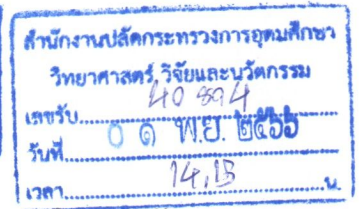 สำนักงานปลัดกระทรวงการอุดมศึกษา
วิทยาศาสตร์ วิจัยและนวัตกรรม
เลขรับ 40894
วันที่ 0 ๑ พ.ย. ๒๕๖๖
เวลา 14.15 น.